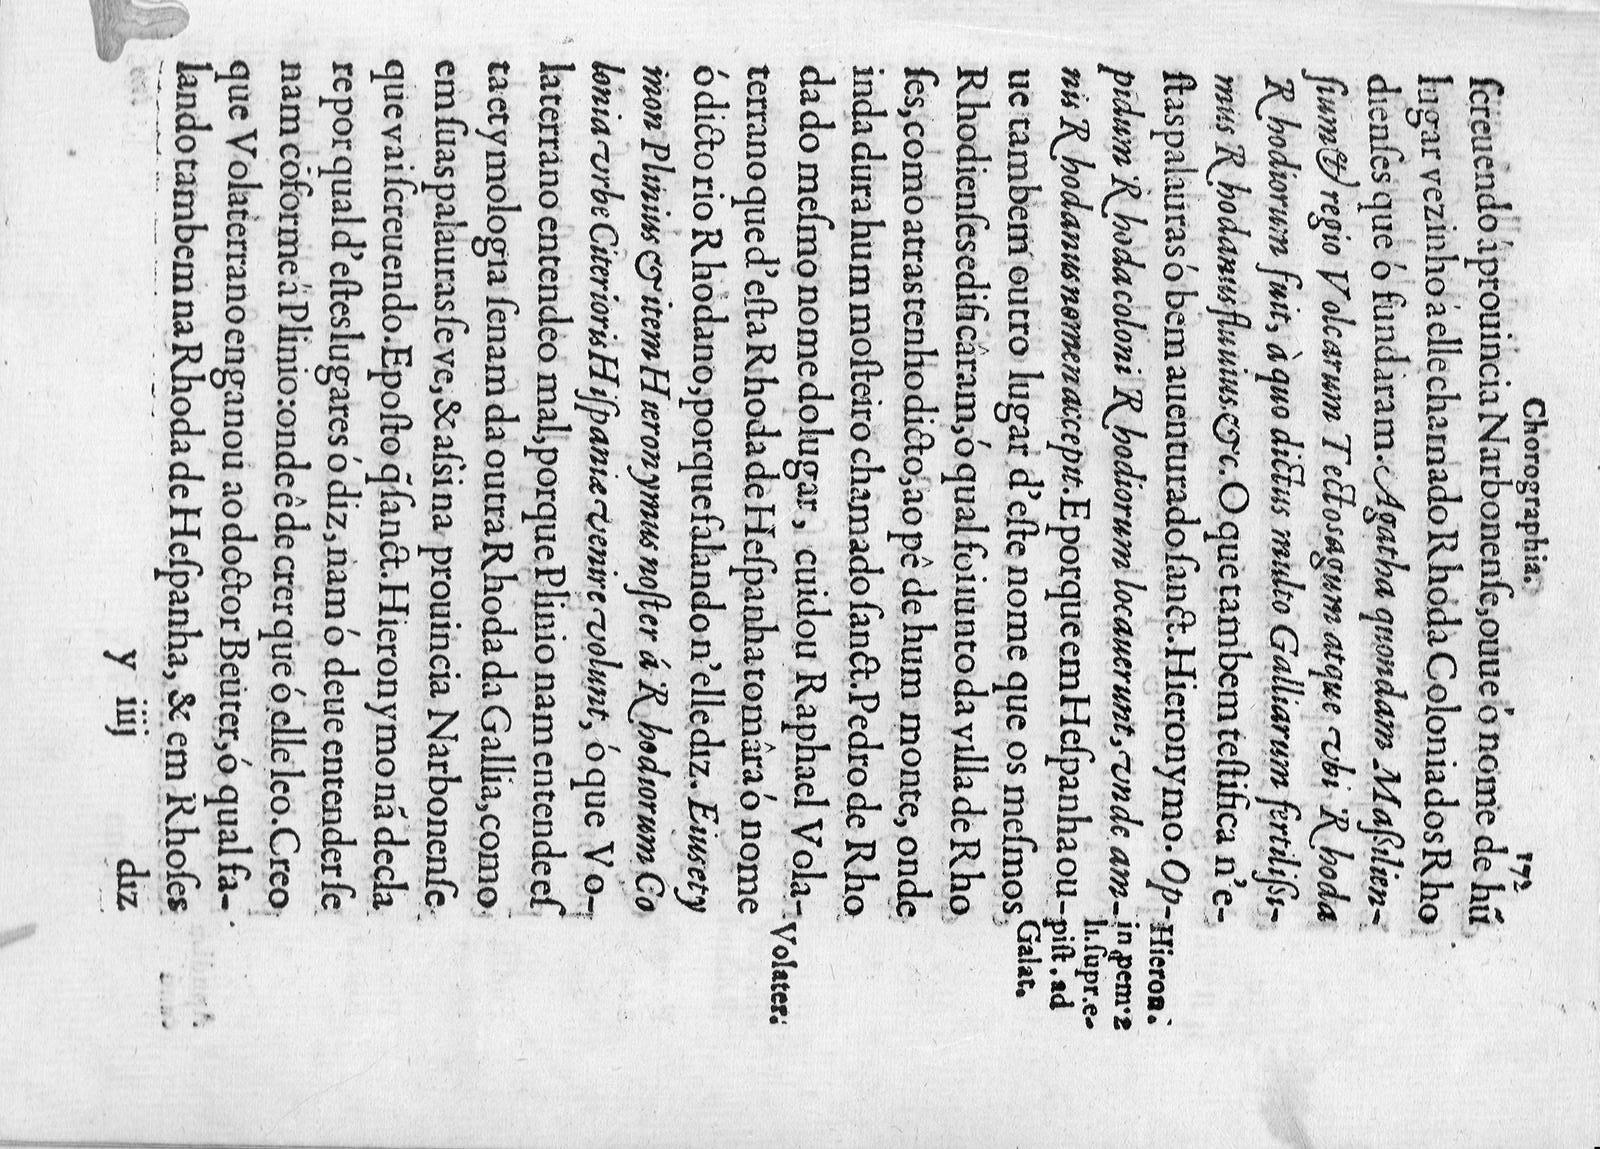 Chorographia. 172
ſcreuendo á prouincia Narbonenſe, ouue ó nome de hũ
lugar vezinho á elle chamado Rhoda Colonia dos Rho
dienſes que ó fundàram. Agatha quondam Maſsilien-
ſium & regio Volcarum Tectosagum atque vbi Rhoda
Rhodiorum fuit, à quo dictus multo Galliarum fertiliſsi-
mus Rhodanus fluuius &c. O que tambem teſtifica n'e-
ſtas palauras ó bem auenturado ſanct. Hieronymo. Op-
pidum Rhoda coloni Rhodiorum locauerunt, vnde am-
nis Rhodanus nomen accepit. E porque em Heſpanha ou-
ue tambem outro lugar d'eſte nome que os meſmos
Rhodienſes edificâram, ó qual foi iunto da villa de Rho
ſes, como atras tenho dicto, ao pê de hum monte, onde
inda dura hum moſteiro chamado ſanct. Pedro de Rho
da do meſmo nome do lugar, cuidou Raphael Vola-
terrano que d'eſta Rhoda de Heſpanha tomâra ó nome
ó dicto rio Rhodano, porque falando n'elle diz. Eius ety
mon Plinius & item Hieronymus noſter á Rhodiorum Co
lonia vrbe Citerioris Hiſpaniæ venire volunt, ó que Vo-
laterrano entendeo mal, porque Plinio nam entende eſ
ta etymologia ſenam da outra Rhoda da Gallia, como
em ſuas palauras ſe ve, & aſsi na prouincia Narbonenſe
que vai ſcreuendo. E poſto q̃ ſanct. Hieronymo nã decla
re por qual d'eſtes lugares ó diz, nam ó deue entender ſe
nam cõforme á Plinio: onde ê de crer que ó elle leo. Creo
que Volaterrano enganou ao doctor Beuter, ó qual fa-
lando tambem na Rhoda de Heſpanha, & em Rhoſes
y iiij diz
Hieron.
in pem² 2
li. ſupr. e-
piſt. ad
Galat.
Volater.